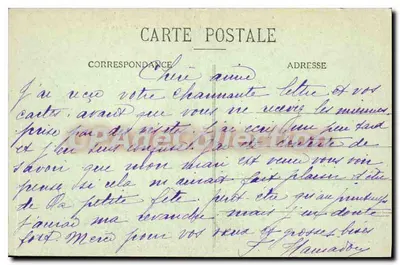 CARTE POSTALE
CORRESPONDANCE ADRESSE
Chère amie
J'ai reçu votre charmante lettre et vos
cartes avant que vous ne les miennes
prise par des j'ai écris une peu tard
et j'en suis de
savoir que mon mari est venue vous
pense si cela m'aurait fait plaisir d'être
de la petite fête peut être qu'au printemps
j'aurai ma revanche mais j'en doute
fort Merci pour vos vœux et grosses bises